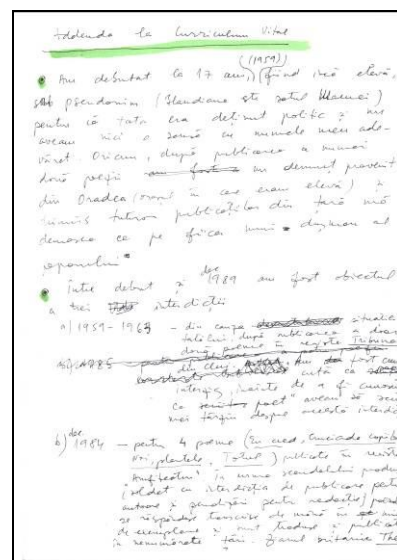 Addenda la Curriculum Vitae
(1959)
Am debutat la 17 ani, fiind încă elevă,
sub pseudonim (Blandiana este satul Mamei)
pentru că tata era deținut politic și nu
aveam nici o șansă cu numele meu ade-
vărat. Oricum, după publicarea a numai
două poezii un denunț provenit
din Oradea (orașul în care eram elevă) și
trimis tuturor publicațiilor din țară mă
demasca ca pe fiica unui dușman al
poporului.
Între debut și dec 1989 am fost obiectul
a trei interdicții
a) 1959-1963 - din cauza situației
tatălui după publicarea a doar
două poeme în revista Tribuna
din Cluj. Am fost
interzisă, înainte de a fi
ca poet
mai târziu despre această interdicție
b) dec 1984 - pentru 4 poeme (Eu cred, Cruciada copiilor,
plantele, Totul) publicate în revista
"Amfiteatru" în urma scandalului produs
(soldat cu interdicția de publicare pentru
autoare și penalizări pentru redacție)
se răspândesc transcrise de mână în
de exemplare și sunt traduse și publicate
în nenumărate țări. Ziarul britanic The